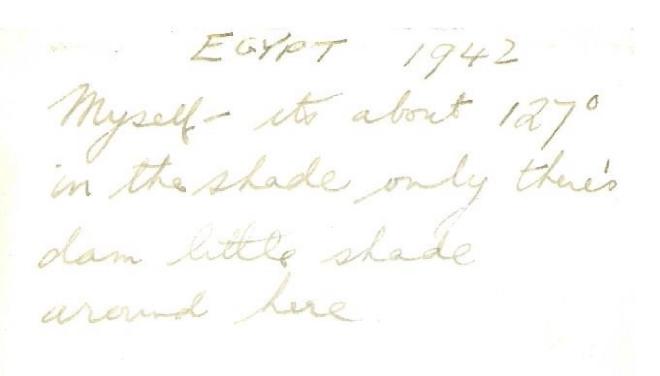 EGYPT 1942
Myself - its about 127°
in the shade only there's
dam little shade
around here